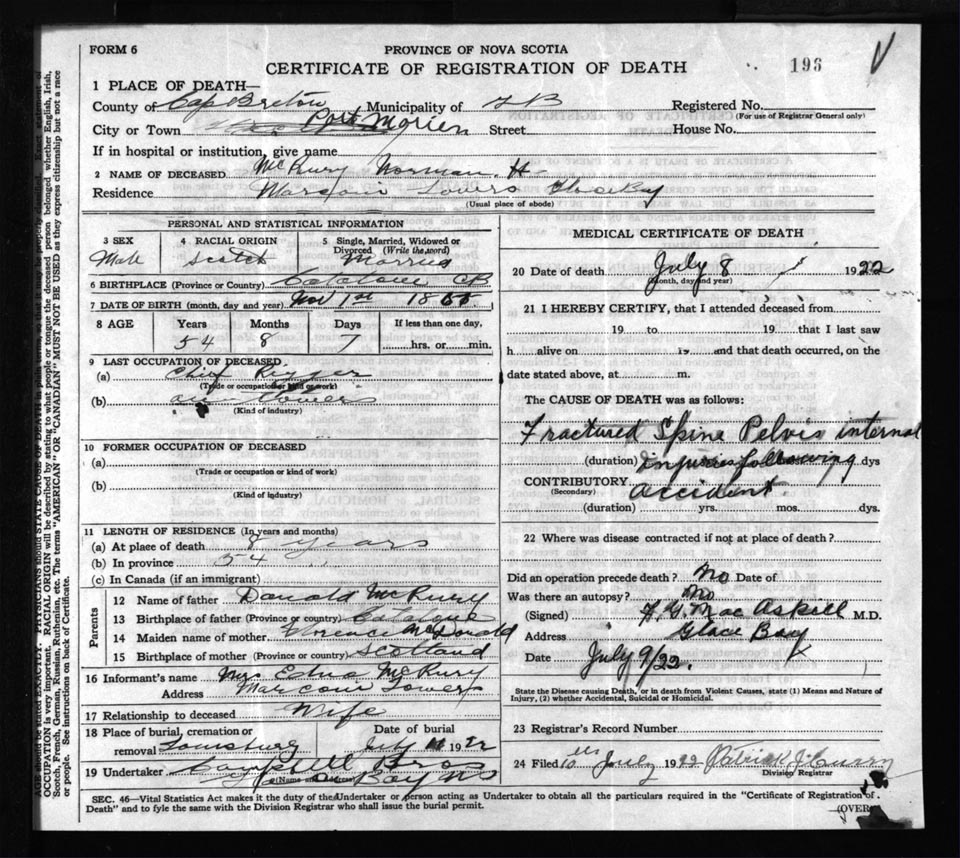 FORM 6
PROVINCE OF NOVA SCOTIA
CERTIFICATE OF REGISTRATION OF DEATH
196
1 PLACE OF DEATH—
County of Cape Breton Municipality of Registered No.
(For use of Registrar General only)
City or Town Port Morien Street House No.
If in hospital or institution, give name
2 NAME OF DECEASED McRury Norman. H-
Residence Marconi Towers Glace Bay
(Usual place of abode)
PERSONAL AND STATISTICAL INFORMATION
3 SEX Male
4 RACIAL ORIGIN Scotch
5 Single, Married, Widowed or Divorced (Write the word) Married
6 BIRTHPLACE (Province or Country) Catalone CB
7 DATE OF BIRTH (month, day and year) Nov 1st 18
8 AGE Years Months Days If less than one day,
54 8 7 hrs. or min.
9 LAST OCCUPATION OF DECEASED
(a) Chief Rigger
(Trade or occupation or kind of work)
(b) Towers
(Kind of industry)
10 FORMER OCCUPATION OF DECEASED
(a)
(Trade or occupation or kind of work)
(b)
(Kind of industry)
11 LENGTH OF RESIDENCE (In years and months)
(a) At place of death 8 years
(b) In province 54
(c) In Canada (if an immigrant)
Parents
12 Name of father Donald McRury
13 Birthplace of father (Province or country) Catalone
14 Maiden name of mother Florence McDonald
15 Birthplace of mother (Province or country) Scotland
16 Informant's name Mrs Edna McRury
Address Marconi Towers
17 Relationship to deceased Wife
18 Place of burial, cremation or removal Louisburg
Date of burial July 1922
19 Undertaker Campbell Bros
(Name and Address) Glace Bay NS
MEDICAL CERTIFICATE OF DEATH
20 Date of death July 8 1922
(Month, day and year)
21 I HEREBY CERTIFY, that I attended deceased from
19 to 19 that I last saw
h alive on 19 and that death occurred, on the
date stated above, at m.
The CAUSE OF DEATH was as follows:
Fractured Spine Pelvis internal
(duration) Injuries following dys
CONTRIBUTORY accident
(Secondary)
(duration) yrs. mos. dys.
22 Where was disease contracted if not at place of death?
Did an operation precede death? No Date of
Was there an autopsy? No
(Signed) MacAskill M.D.
Address Glace Bay
Date July 9/22.
State the Disease causing Death, or in death from Violent Causes, state (1) Means and Nature of
Injury, (2) whether Accidental, Suicidal or Homicidal.
23 Registrar's Record Number
24 Filed 10th July 1922 Patrick J Curry
Division Registrar
SEC. 46—Vital Statistics Act makes it the duty of the Undertaker or person acting as Undertaker to obtain all the particulars required in the "Certificate of Registration of
Death" and to fyle the same with the Division Registrar who shall issue the burial permit.
(OVER)
AGE should be stated EXACTLY. PHYSICIANS should STATE CAUSE OF DEATH in plain terms, Exact statement of
OCCUPATION is very important. RACIAL ORIGIN will be described by stating to what people or tongue the deceased person belonged whether English, Irish,
Scotch, French, German, Russian, Ruthenian, etc. The terms "AMERICAN" OR "CANADIAN" MUST NOT BE USED as they express citizenship but not a race
or people. See instructions on back of Certificate.